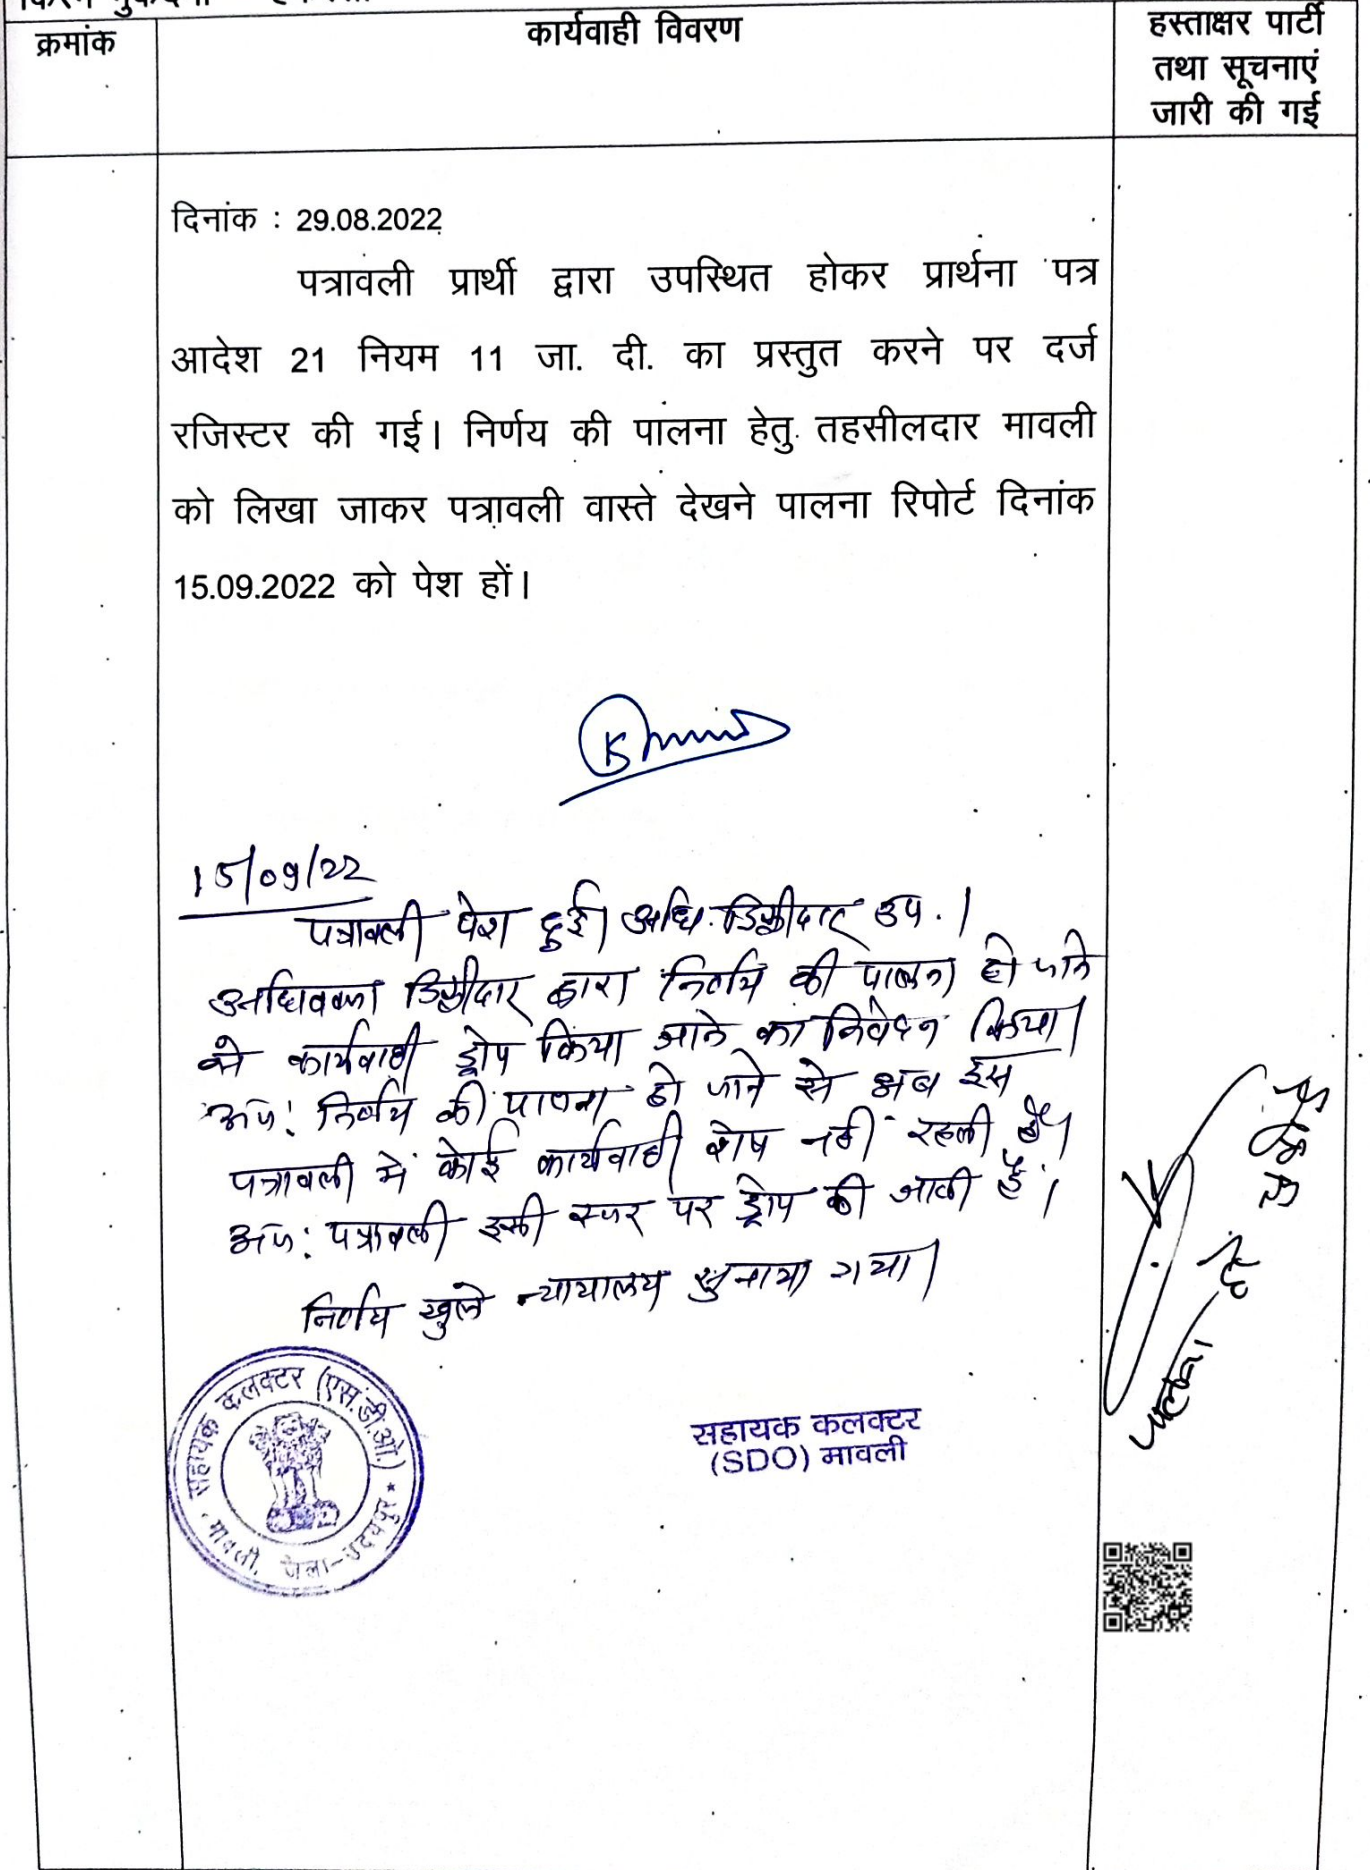 क्रमांक
कार्यवाही विवरण
हस्ताक्षर पार्टी
तथा सूचनाएं
जारी की गई
दिनांक : 29.08.2022
पत्रावली प्रार्थी द्वारा उपस्थित होकर प्रार्थना पत्र
आदेश 21 नियम 11 जा. दी. का प्रस्तुत करने पर दर्ज
रजिस्टर की गई। निर्णय की पालना हेतु तहसीलदार मावली
को लिखा जाकर पत्रावली वास्ते देखने पालना रिपोर्ट दिनांक
15.09.2022 को पेश हों।
15/09/22
पत्रावली पेश हुई। अधि. डिक्रीदार उप.।
अधिवक्ता डिक्रीदार द्वारा निर्णय की पालना हो जाने
से कार्यवाही ड्रोप किया जाने का निवेदन किया।
अतः निर्णय की पालना हो जाने से अब इस
पत्रावली में कोई कार्यवाही शेष नहीं रहती है।
अतः पत्रावली इसी स्तर पर ड्रोप की जाती है।
निर्णय खुले न्यायालय सुनाया गया।
सहायक कलक्टर (एस.डी.ओ.)
मावली, जिला-उदयपुर
सहायक कलक्टर
(SDO) मावली